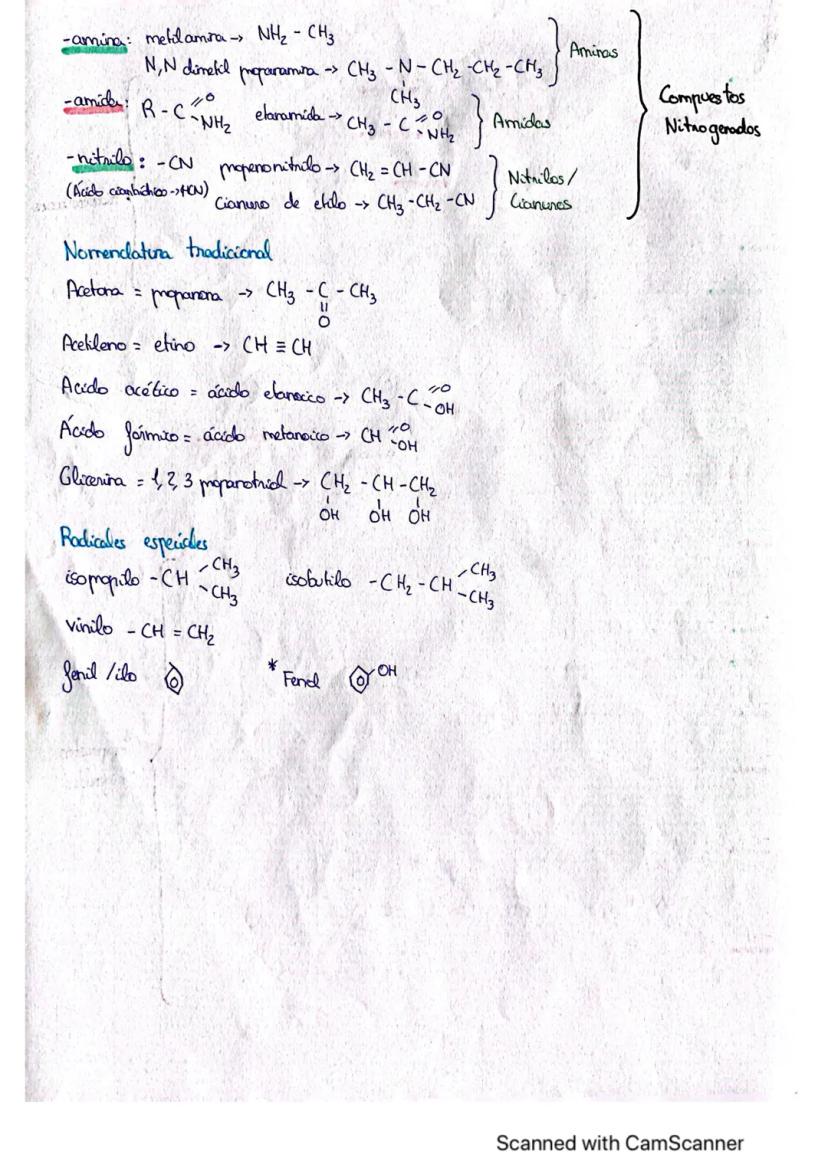 -amina: metilamina → NH₂ - CH₃
N,N dimetil propanamina → CH₃ - N - CH₂ - CH₂ - CH₃
CH₃
Aminas
-amida: R - C =O -NH₂ etanamida → CH₃ - C =O -NH₂
Amidas
-nitrilo: -CN propenonitrilo → CH₂ = CH - CN
(Ácido cianhídrico → HCN) Cianuro de etilo → CH₃ - CH₂ - CN
Nitrilos /
Cianuros
Compuestos
Nitrogenados
Nomenclatura tradicional
Acetona = propanona → CH₃ - C - CH₃
||
O
Acetileno = etino → CH ≡ CH
Acido acético = ácido etanoico → CH₃ - C =O -OH
Ácido fórmico = ácido metanoico → CH =O -OH
Glicerina = 1,2,3 propanotriol → CH₂ - CH - CH₂
OH OH OH
Radicales especiales
isopropilo - CH - CH₃ - CH₃ isobutilo - CH₂ - CH - CH₃ - CH₃
vinilo - CH = CH₂
fenil /ilo * Fenol OH
Scanned with CamScanner